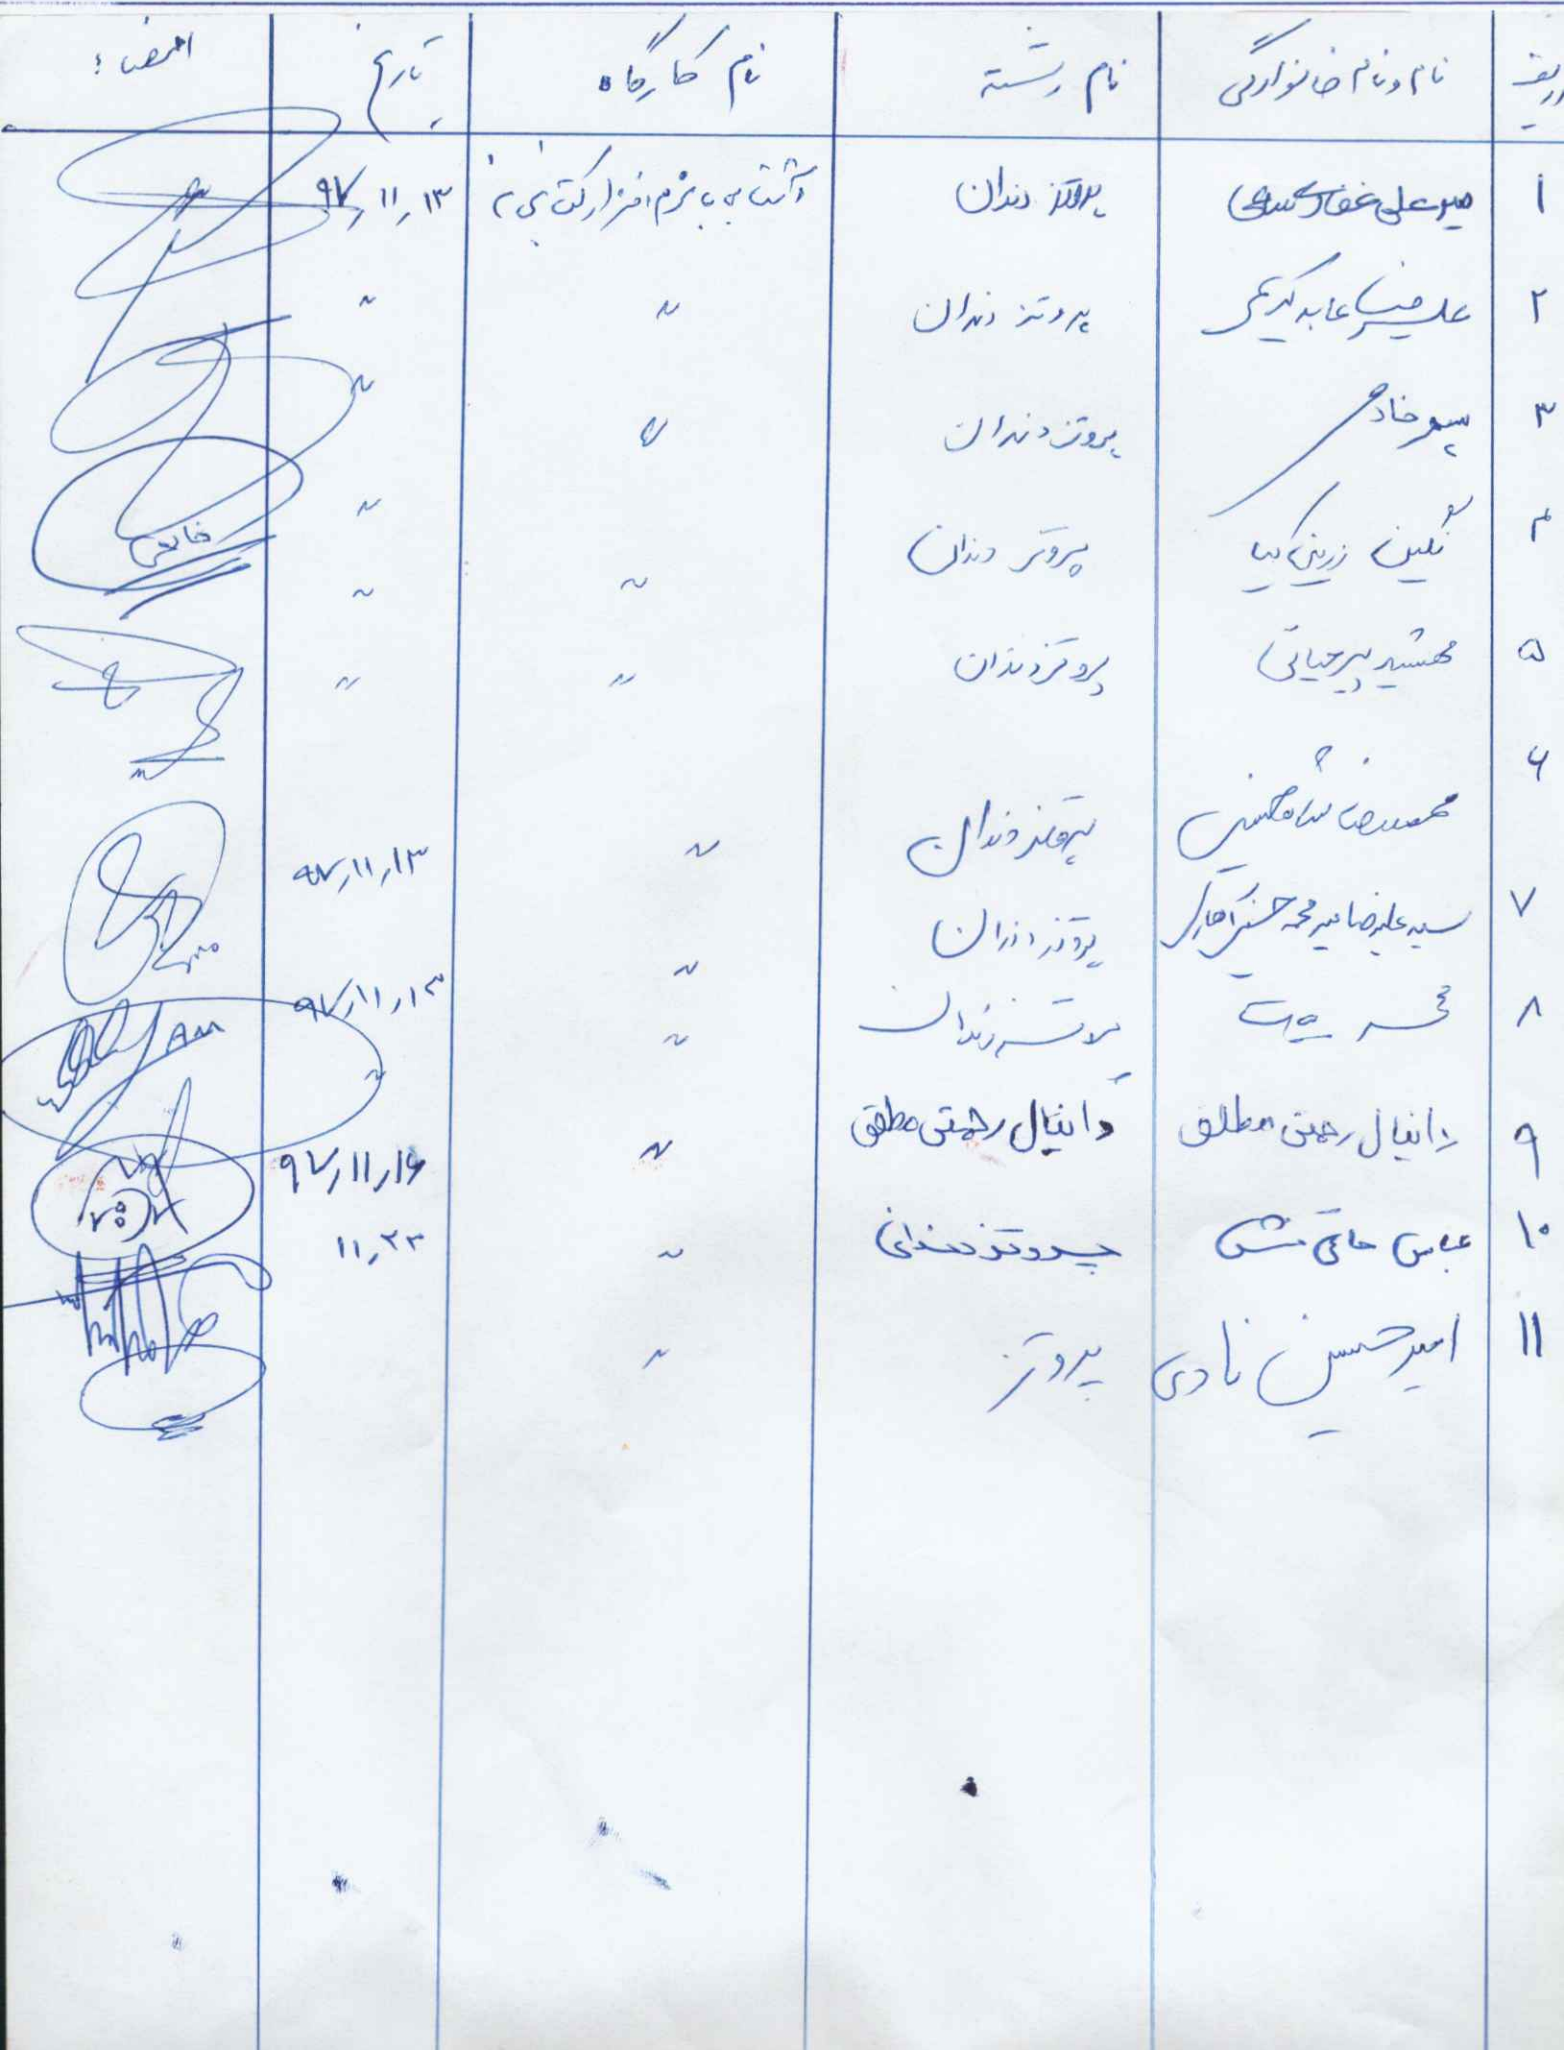 ردیف نام و نام خانوادگی نام رشته نام کارگاه تاریخ امضاء:
۱ میرعلی پروتز دندان آشنایی با نرم افزار ۹۷/۱۱/۱۳
۲ علیرضا عابد کریمی پروتز دندان " "
۳ سپهر خادم پروتز دندان " "
۴ نگین زرینی کیا پروتز دندان " "
۵ مهشید پیرحیاتی پروتز دندان " "
۶ محمدرضا پروتز دندان " ۹۷/۱۱/۱۳
۷ سید علیرضا میرمحمد حسینی پروتز دندان " ۹۷/۱۱/۱۳
۸ پروتز دندان " "
۹ دانیال رحمتی مطلق دانیال رحمتی مطلق " ۹۷/۱۱/۱۶
۱۰ عباس پروتز دندانی " ۱۱/۲۳
۱۱ امیرحسین نادی پروتز "